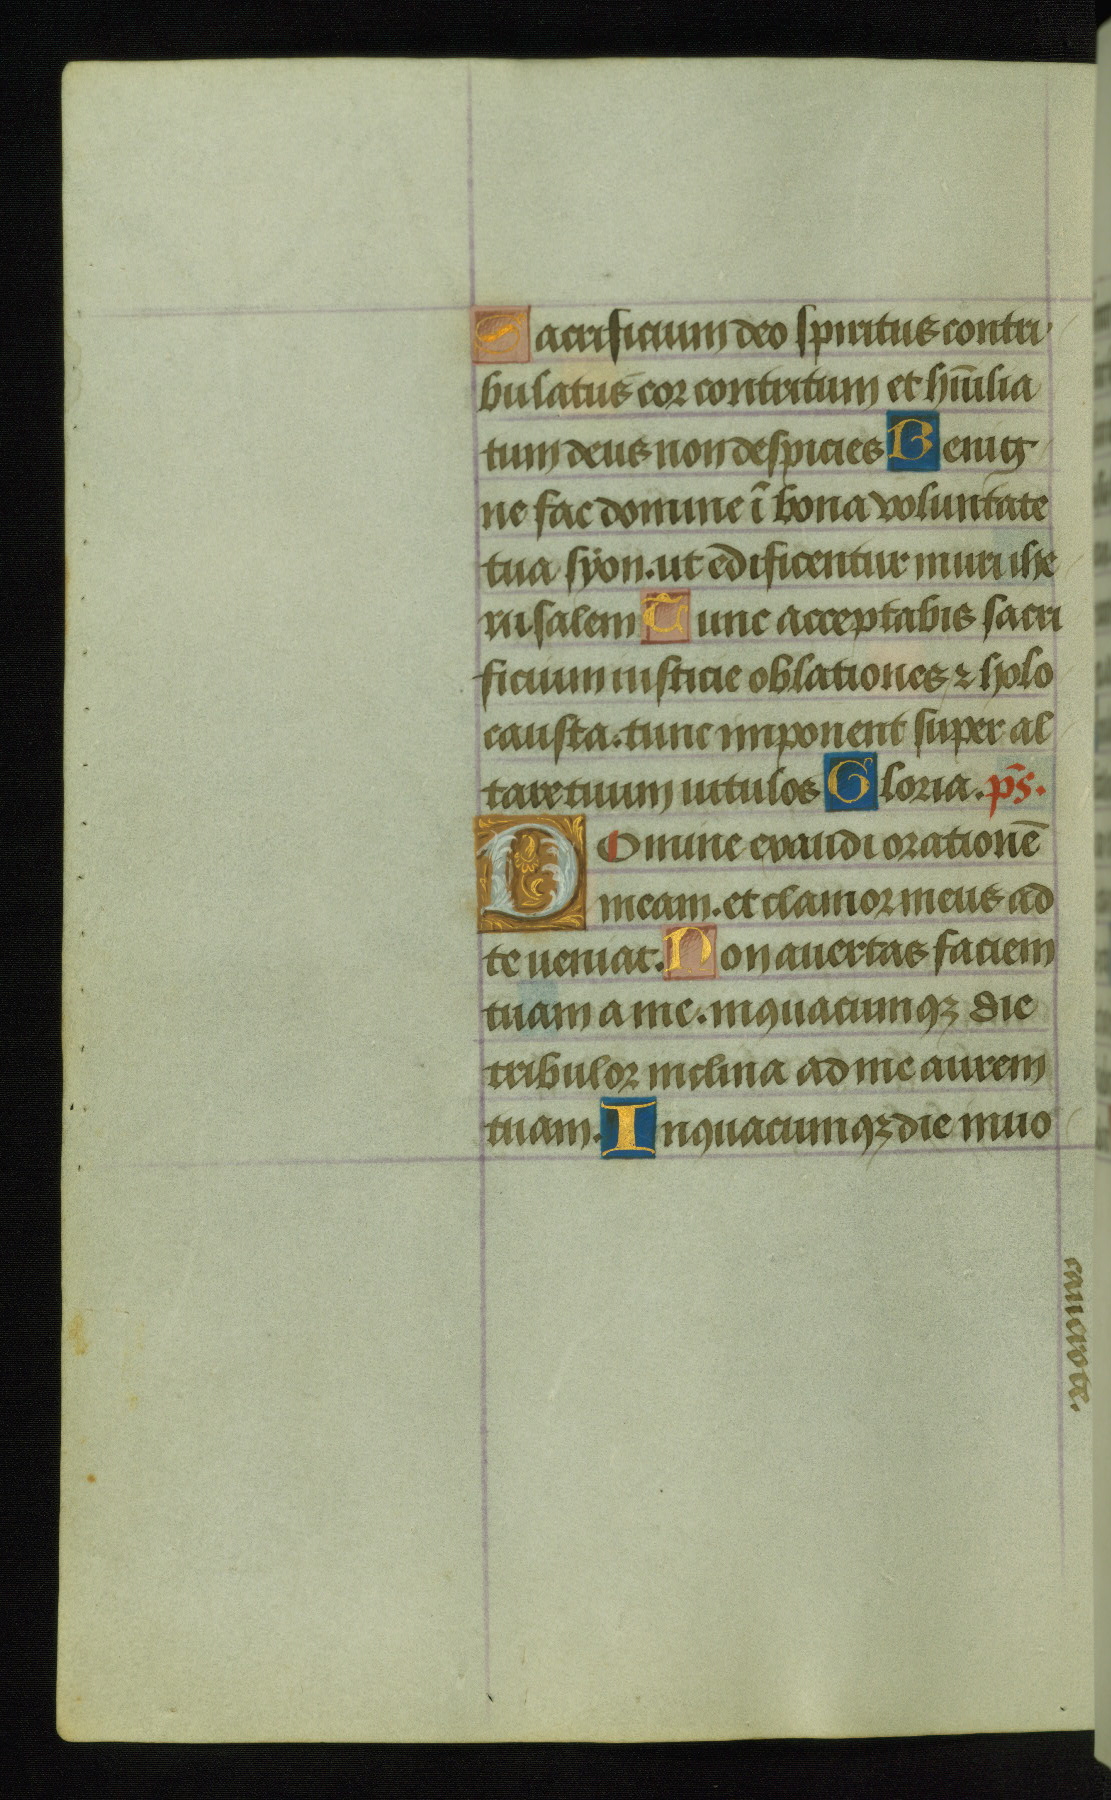 Sacrificium deo spiritus contri
bulatus cor contritum et hūilia
tum deus non despicies Benig
ne fac domine ī bona voluntate
tua syon. ut edificentur muri ihe
rusalem Tunc acceptabis sacri
ficium iusticie oblationes ⁊ holo
causta. tunc imponent super al
tare tuum uitulos Gloria. p̄s.
Domine exaudi orationē
meam. et clamor meus ad
te ueniat. Non auertas faciem
tuam a me. in quacumqꝫ die
tribulor inclina ad me aurem
tuam. In quacumqꝫ die inuo
cauero te.